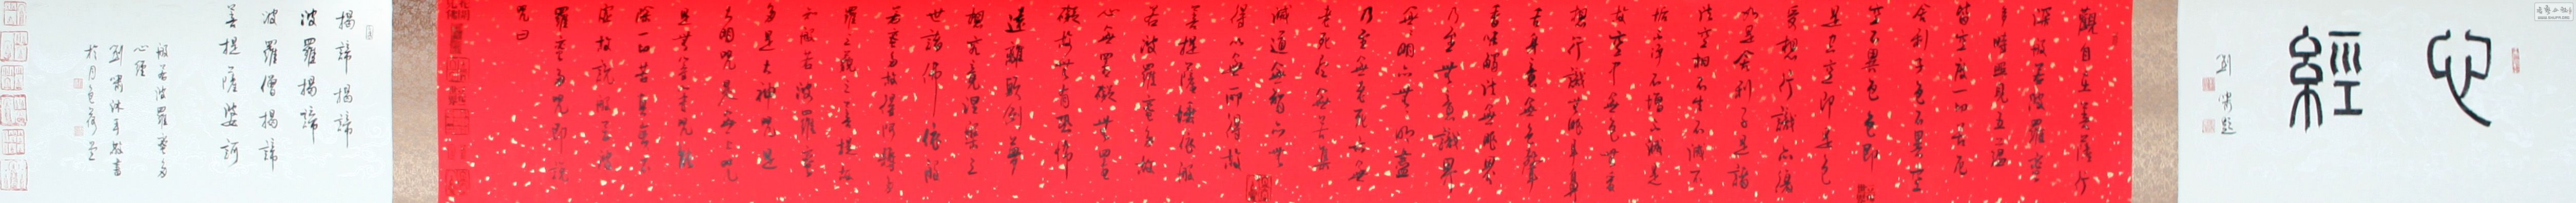 心經
觀自在菩薩行
深般若波羅蜜
多時照見五蘊
皆空度一切苦厄
舍利子色不異空
空不異色色即
是空空即是色
受想行識亦復
如是舍利子是諸
法空相不生不滅不
垢不淨不增不減是
故空中無色無受
想行識無眼耳鼻
舌身意無色聲
香味觸法無眼界
乃至無意識界
無無明亦無無明盡
乃至無老死亦無
老死盡無苦集
滅道無智亦無
得以無所得故
菩提薩埵依般
若波羅蜜多故
心無罣礙無罣
礙故無有恐怖
遠離顛倒夢
想究竟涅槃三
世諸佛依般
若蜜多故得阿耨多
羅三藐三菩提故
知般若波羅蜜
多是大神咒是
大明咒是無上咒
是無等等咒能
除一切苦真實不
虛故說般若波
羅蜜多咒即說
咒曰
揭諦揭諦
波羅揭諦
波羅僧揭諦
菩提薩婆訶
般若波羅蜜多
心經
沐手敬書
於月色荷